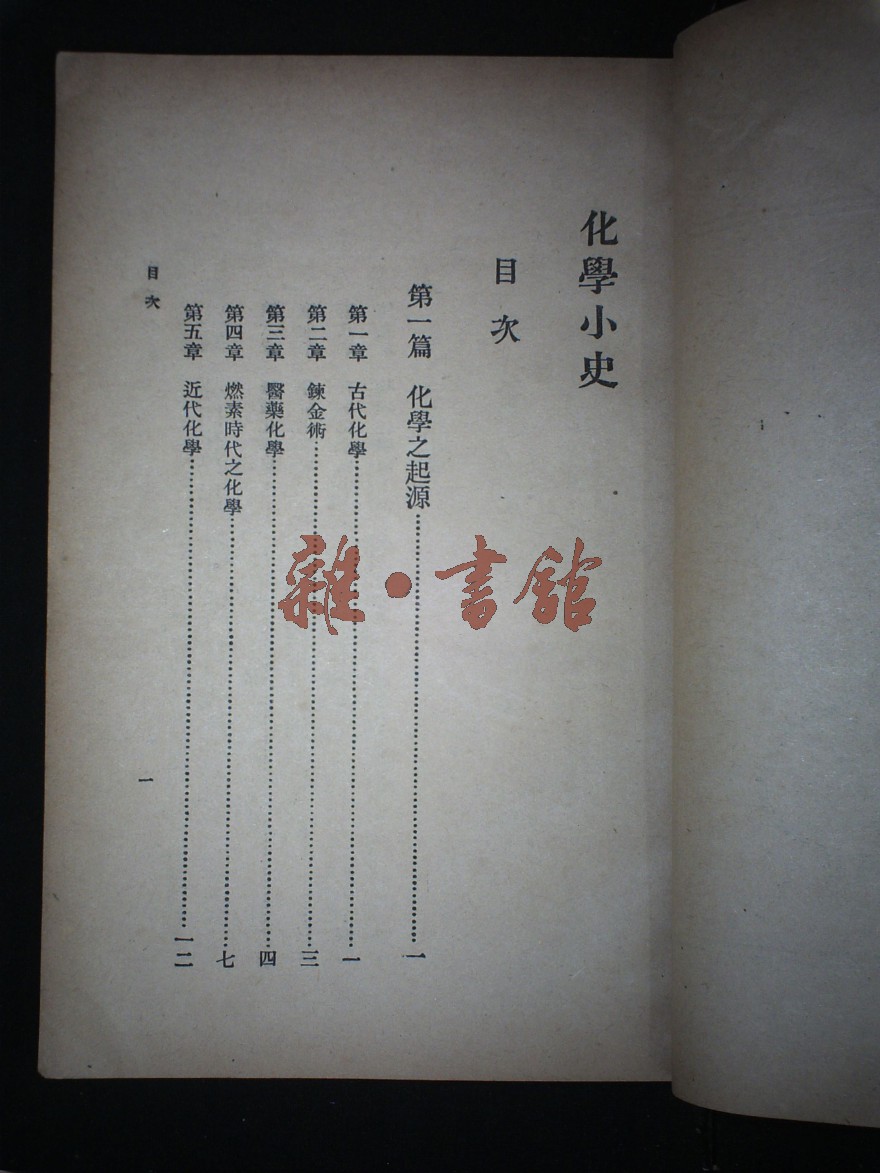 化學小史
目次
第一篇 化學之起源……………………一
第一章 古代化學……………………一
第二章 鍊金術……………………三
第三章 醫藥化學……………………四
第四章 燃素時代之化學……………………七
第五章 近代化學……………………一二
目次
一
雜·書館